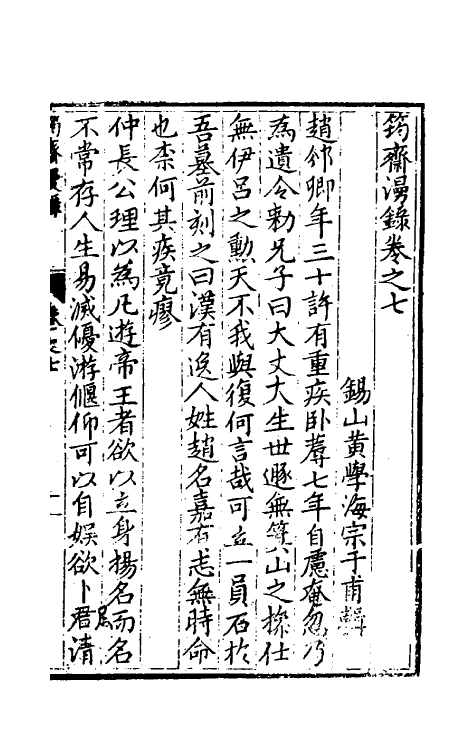 筠齋漫錄卷之七
錫山黃學海宗于甫輯
趙邠卿年三十許有重疾卧蓐七年自慮奄忽乃
為遺令勑兄子曰大丈夫生世遯無箕山之操仕
無伊呂之勳天不我與復何言哉可立一員石於
吾墓前刻之曰漢有逸人姓趙名嘉有志無時命
也柰何其疾竟瘳
仲長公理以為凡遊帝王者欲以立身揚名而名
不常存人生易滅優游偃仰可以自娛欲卜居清
筠齋漫錄 卷之七 一